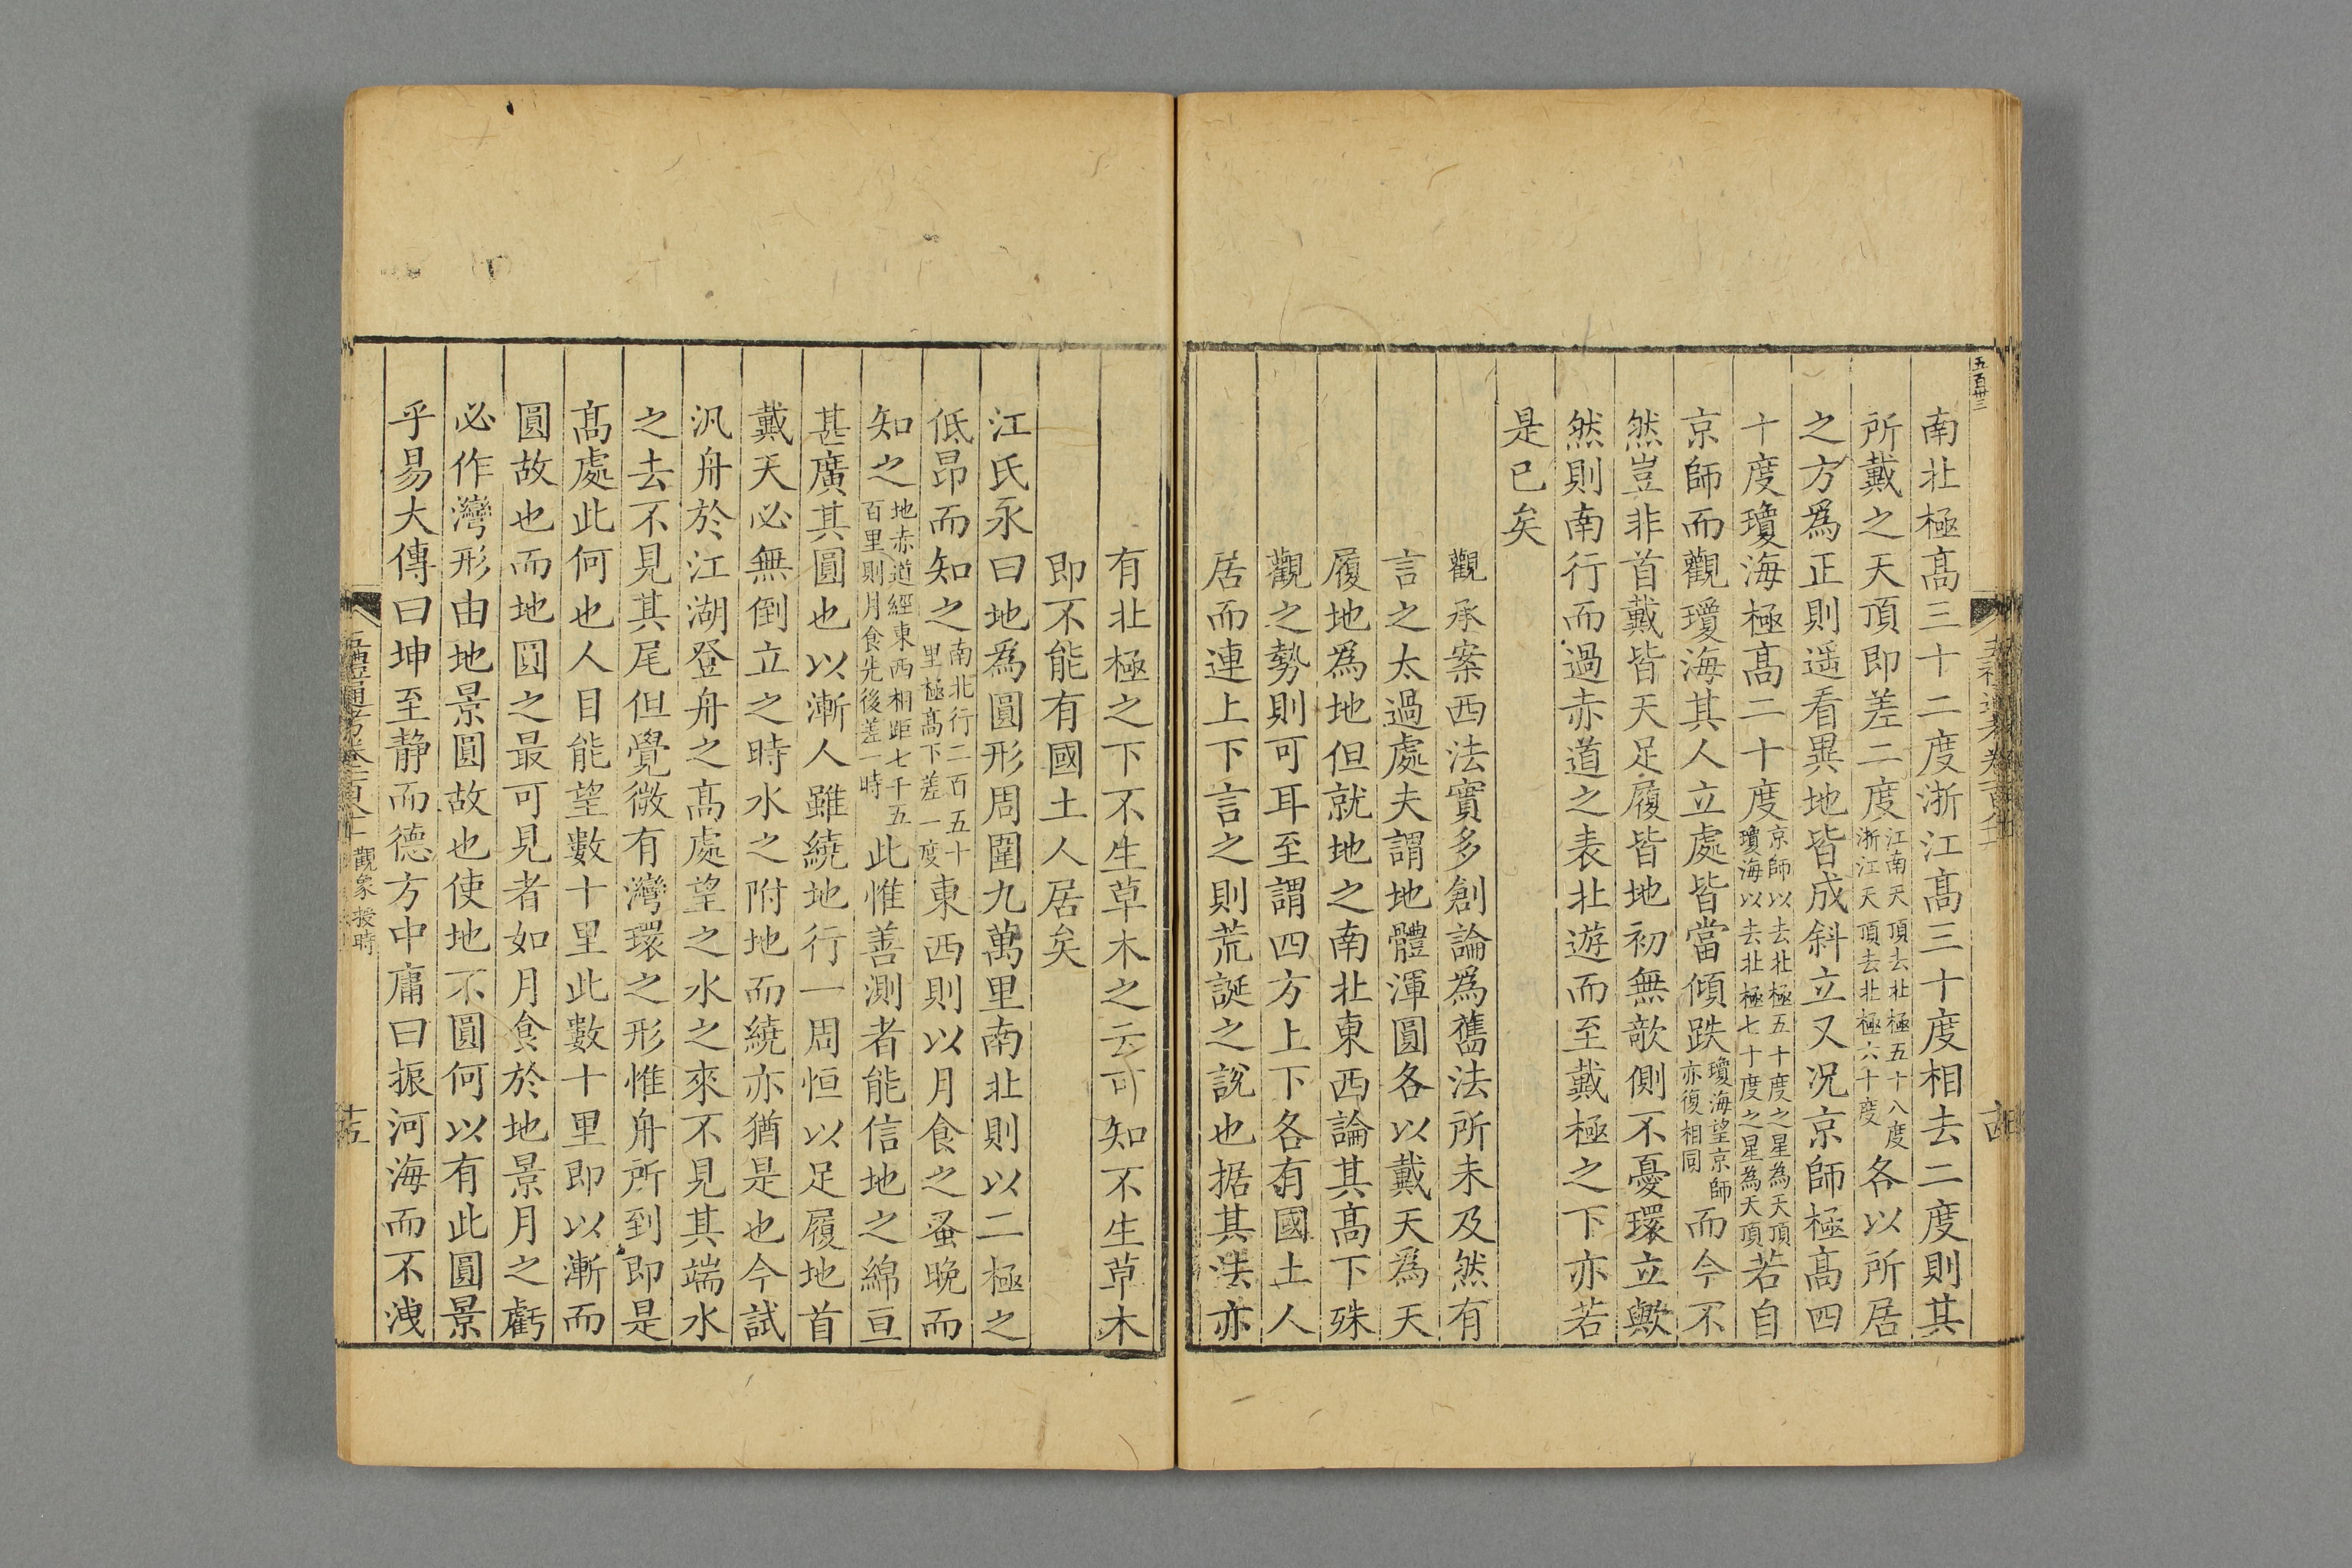 五百卅三
南北極髙三十二度浙江髙三十度相去二度則其
所戴之天頂即差二度江南天頂去北極五十八度浙江天頂去北極六十度各以所居
之方為正則遥看異地皆成斜立又况京師極髙四
十度瓊海極髙二十度京師以去北極五十度之星為天頂瓊海以去北極七十度之星為天頂若自
京師而觀瓊海其人立處皆當傾跌瓊海望京師亦復相同而今不
然豈非首戴皆天足履皆地初無欹側不憂環立歟
然則南行而過赤道之表北遊而至戴極之下亦若
是已矣
觀承案西法實多創論為舊法所未及然有
言之太過處夫謂地體渾圓各以戴天為天
履地為地但就地之南北東西論其髙下殊
觀之勢則可耳至謂四方上下各有國土人
居而連上下言之則荒誕之說也据其法亦
有北極之下不生草木之云可知不生草木
即不能有國土人居矣
江氏永曰地為圓形周圍九萬里南北則以二極之
低昂而知之南北行二百五十里極髙下差一度東西則以月食之蚤晚而
知之地赤道經東西相距七千五百里則月食先後差一時此惟善測者能信地之綿亘
甚廣其圓也以漸人雖繞地行一周恒以足履地首
戴天必無倒立之時水之附地而繞亦猶是也今試
汎舟於江湖登舟之髙處望之水之來不見其端水
之去不見其尾但覺微有灣環之形惟舟所到即是
髙處此何也人目能望數十里此數十里即以漸而
圓故也而地圓之最可見者如月食於地景月之虧
必作灣形由地景圓故也使地不圓何以有此圓景
乎易大傳曰坤至静而德方中庸曰振河海而不洩
五禮通考卷一百八十一 觀象授時
十五